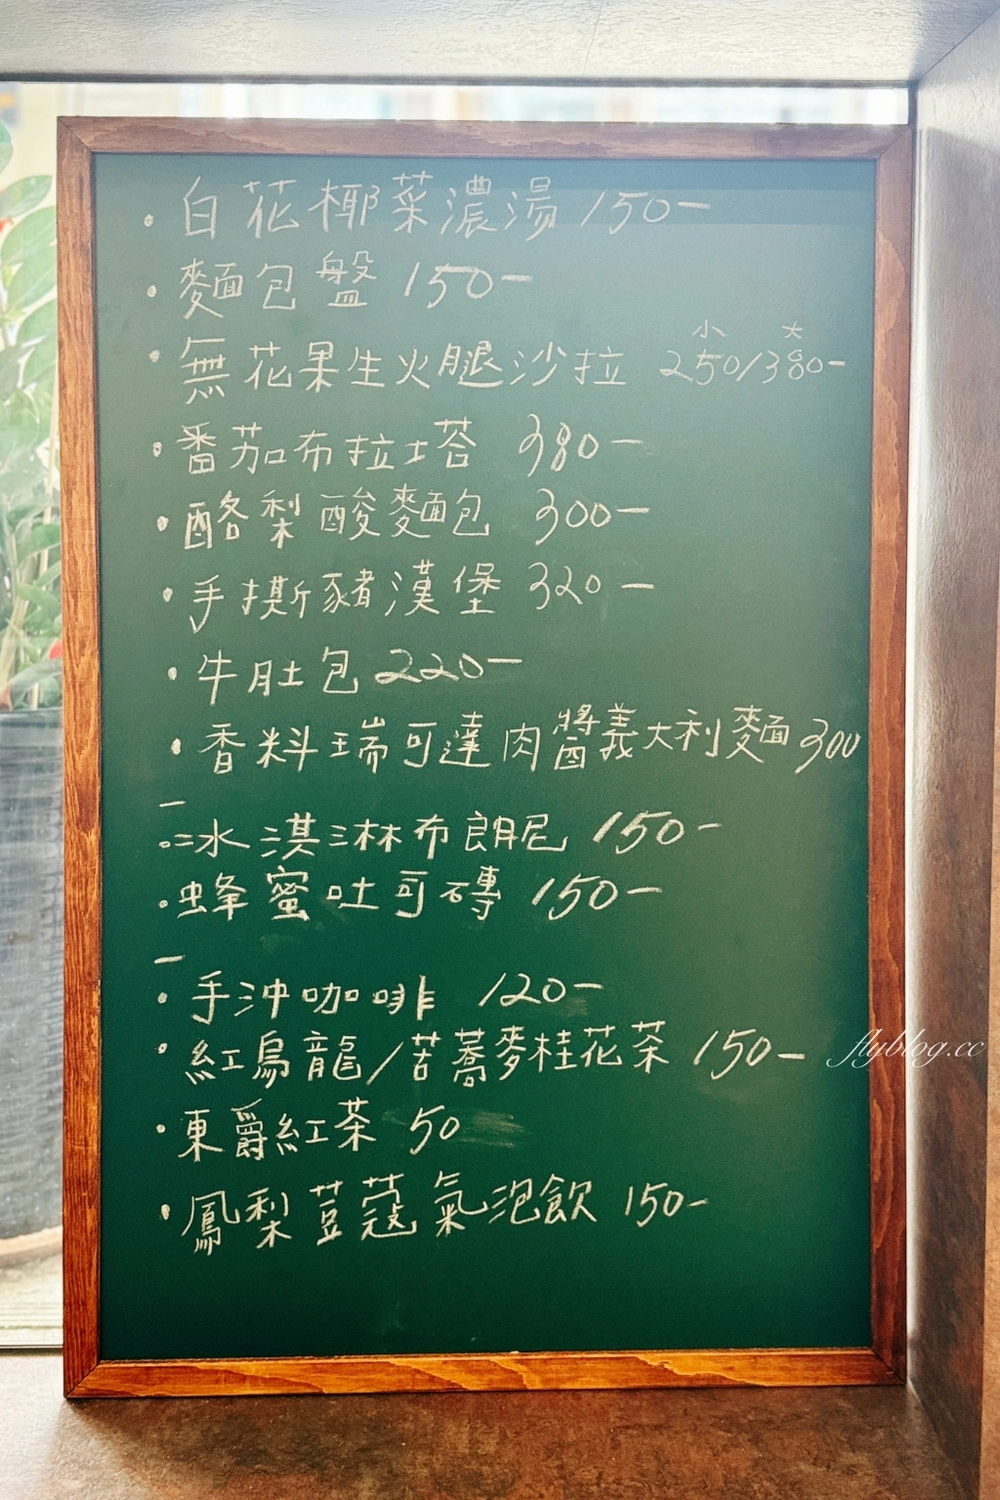 • 白花椰菜濃湯 150-
• 麵包盤 150-
小 大
• 無花果生火腿沙拉 250/380-
• 番茄布拉塔 380-
• 酪梨酸麵包 300-
• 手撕豬漢堡 320-
• 牛肚包 220-
• 香料瑞可達肉醬義大利麵 300
-
• 冰淇淋布朗尼 150-
• 蜂蜜吐可磚 150-
-
• 手沖咖啡 120-
• 紅烏龍/苦蕎麥桂花茶 150-
• 東爵紅茶 50
• 鳳梨荳蔻氣泡飲 150-
flyblog.cc